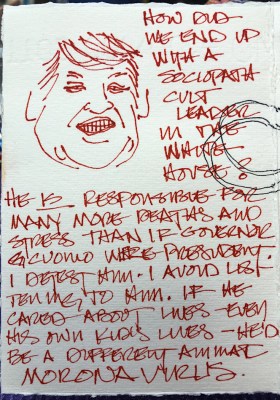 HOW DID
WE END UP
WITH A
SOCIOPATH
CULT
LEADER
IN THE
WHITE
HOUSE?
HE IS RESPONSIBLE FOR
MANY MORE DEATHS AND
STRESS THAN IF GOVERNOR
CUOMO WERE PRESIDENT.
I DETEST HIM. I AVOID LIS-
TENING TO HIM. IF HE
CARED ABOUT LIVES - EVEN
HIS OWN KIDS LIVES - HE'D
BE A DIFFERENT ANIMAL
MORONAVIRUS.